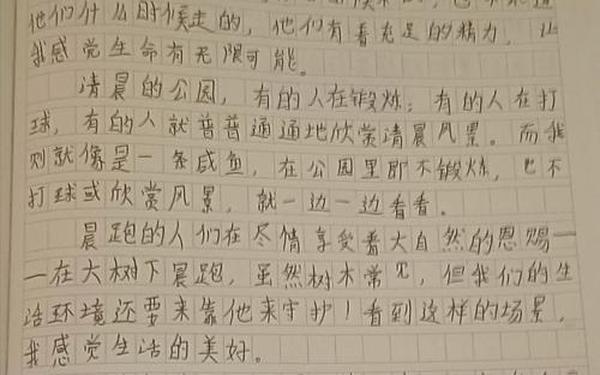 他们什么时候走的，他们有着充足的精力，让
我感觉生命有无限可能。
清晨的公园，有的人在锻炼；有的人在打
球，有的人就普普通通地欣赏清晨风景。而我
则就像是一条咸鱼，在公园里即不锻炼，也不
打球或欣赏风景，就一边一边看看。
晨跑的人们在尽情享受着大自然的恩赐—
—在大树下晨跑，虽然树木常见，但我们的生
活环境还要来靠他来守护！看到这样的场景，
我感觉生活的美好。